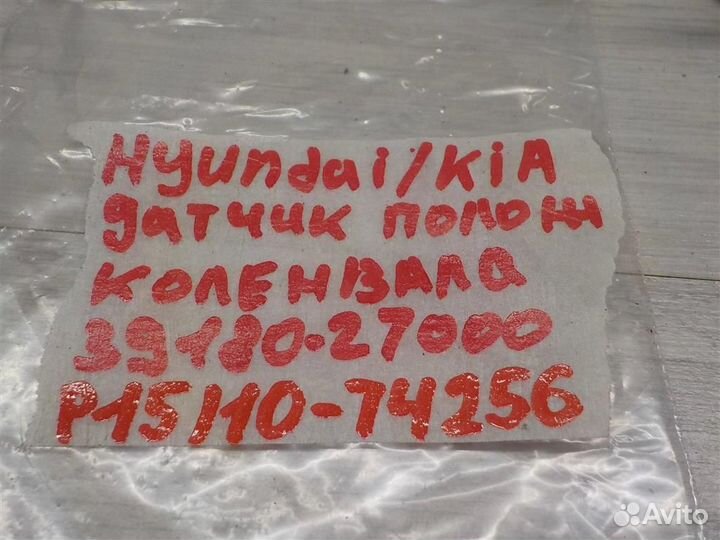 Hyundai/KiA
датчик полож
КОЛЕНВАЛа
39180-27000
P15/10-74256
Avito